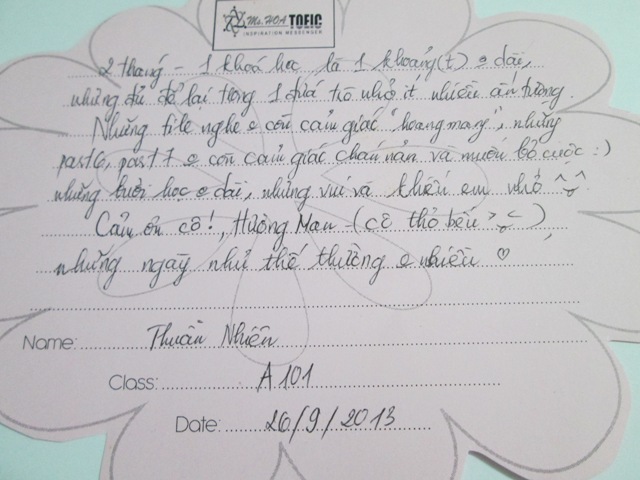 Ms. HOA TOEIC
INSPIRATION MESSENGER
2 tháng - 1 khoá học là 1 khoảng (t) ko dài,
nhưng đủ để lại trong 1 đứa trò nhỏ ít nhiều ấn tượng.
Những file nghe ko còn cảm giác "hoang mang", những
part 6, part 7 ko còn cảm giác chán nản và muốn bỏ cuộc :)
những buổi học ko dài, nhưng vui và khiến em nhớ ^^
Cảm ơn cô!, Hường Man - (cô thỏ béo >.<),
những ngày như thế thường ko nhiều ♡
Name: Thuần Nhiên
Class: A101
Date: 26/9/2013